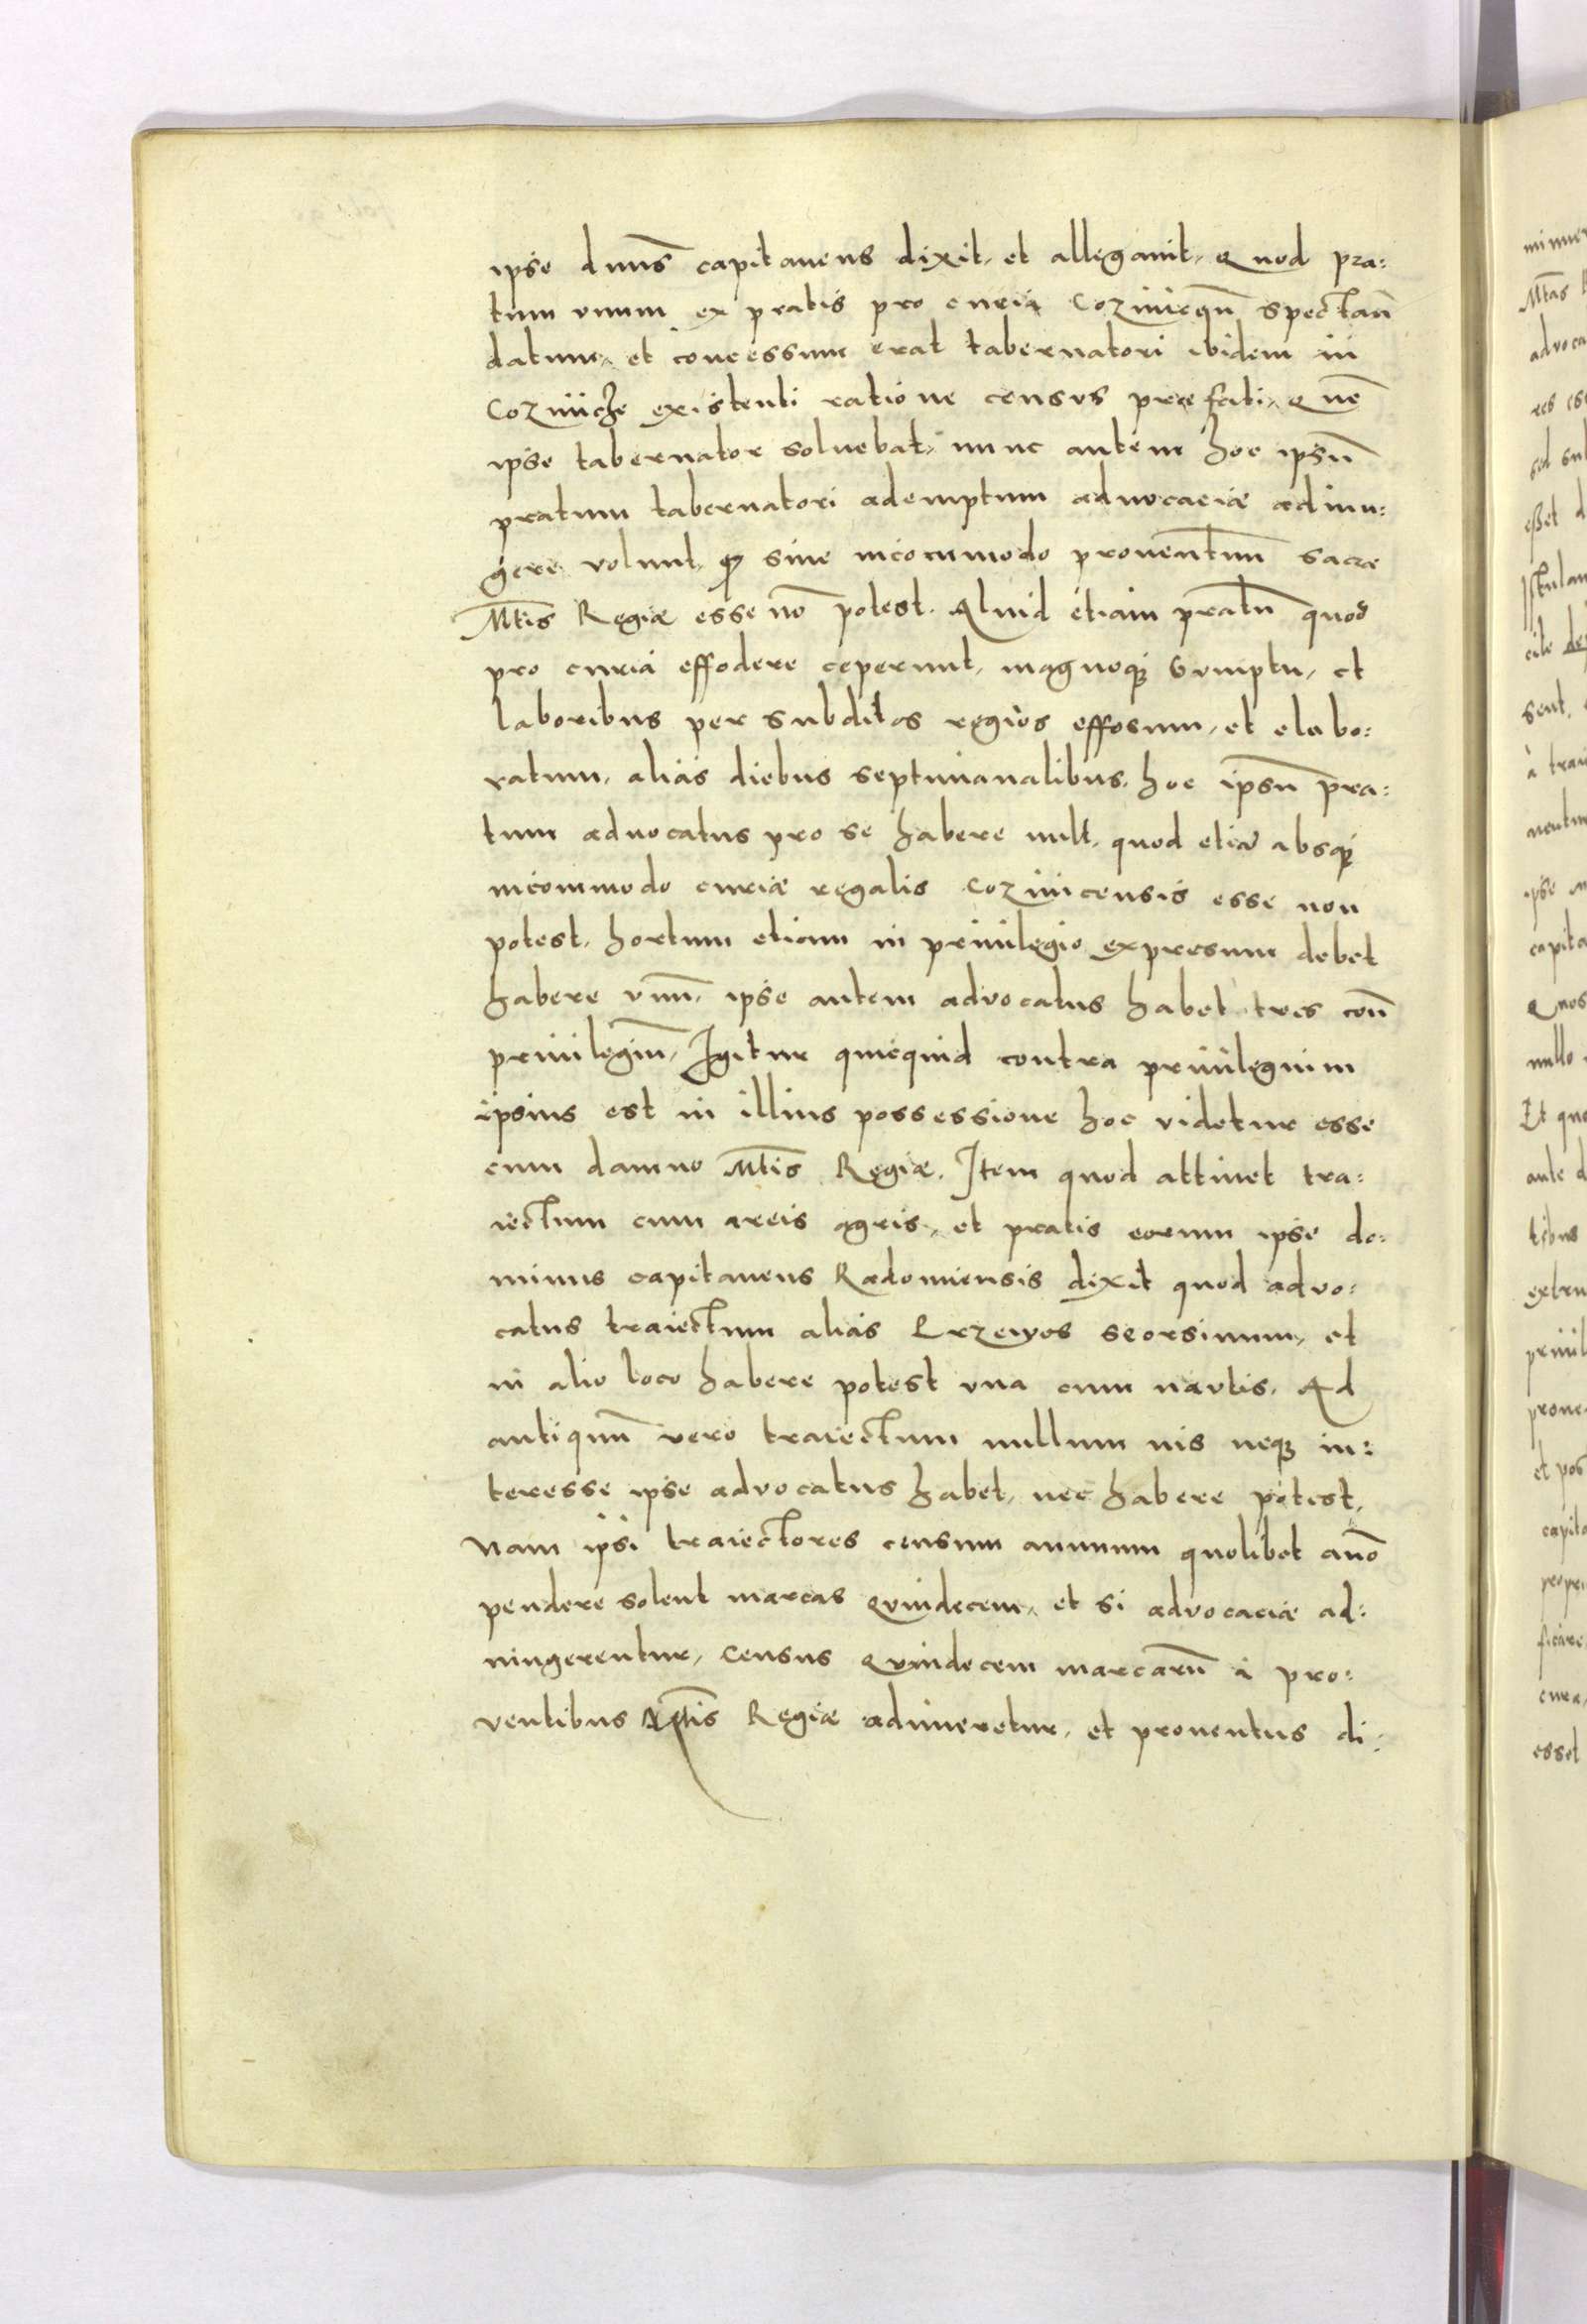 ipse dnns̄ capitaneus dixit, et allegauit, Quod pra:
tum vnum ex pratis pro curia Coznicen̄ spectan̄
datum, et concessum erat tabernatori ibidem in
Coznicze existenti ratione census præfati, Quē
ipse tabernator soluebat, nunc autem hoc ipsū
pratum tabernatori ademptum aduocaciæ adiun:
gere volunt, sine incommodo prouentuum sacræ
Mtis̄ Regiæ esse nō potest. Aliud etiam pratū quod
pro curia effodere ceperunt, magnoqȝ sumptu, et
laboribus per subditos regios effosum, et elabo:
ratum, alias diebus septimanalibus, hoc ipsū pra:
tum aduocatus pro se habere uult, quod etiā absqȝ
incommodo curiæ regalis Coznicensis esse non
potest, hortum etiam in priuilegio expresum debet
habere vnū, ipse autem advocatus habet tres con̄
priuilegiū, Igitur quicquid contra priuilegium
ipsius est in illius possessione hoc videtur esse
cum damno Mtis̄ Regiæ. Item quod attinet tra:
iectum cum areis agris, et pratis eorum ipse do:
minus capitaneus Radomiensis dixit quod advo:
catus traiectum alias Przewos seorsiuum, et
in alio loco habere potest vna cum nautis, Ad
antiquū vero traiectum nullum uis neqȝ in:
teresse ipse advocatus habet, nec habere potest,
Nam ipsi traiectores censum annuum quolibet anō
pendere solent marcas Quindecem, et si advocaciæ ad:
iungerentur, Census Quindecem marcarū à pro:
ventibus Mtis̄ Regiæ adimeretur, et prouentus di: